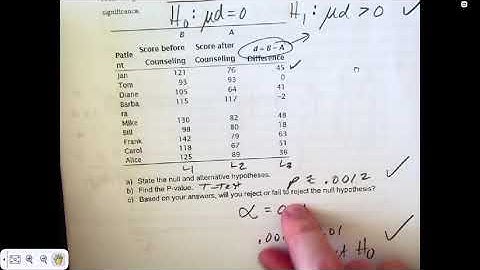 significance.
H₀: μd = 0 H₁: μd > 0
B A
Patie Score before Score after d = B - A
nt Counseling Counseling Difference
Jan 121 76 45
Tom 93 93 0
Diane 105 64 41
Barba 115 117 -2
ra
Mike 130 82 48
Bill 98 80 18
Frank 142 79 63
Carol 118 67 51
Alice 125 89 36
L1 L2 L3
a) State the null and alternative hypotheses.
b) Find the P-value. T-Test P ≈ .0012
c) Based on your answers, will you reject or fail to reject the null hypothesis?
α =
.01
H₀